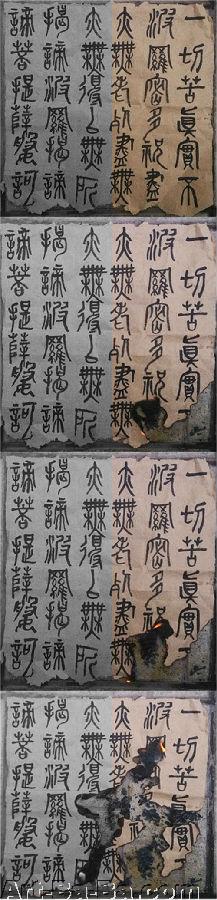 一切苦眞實不
波羅密多祝
亦無老死盡無
亦無得以無所
揭諦波羅揭諦
諦菩提薩婆訶
一切苦眞實
波羅密多祝
亦無老死盡無
亦無得以無所
揭諦波羅揭諦
諦菩提薩婆訶
一切苦眞實
波羅密多祝
亦無老死盡
亦無得以無所
揭諦波羅揭諦
諦菩提薩婆訶
一切苦眞實
波羅
亦無
亦無得以
揭諦波羅揭諦
諦菩提薩婆訶
Art-Ea-Ea.com